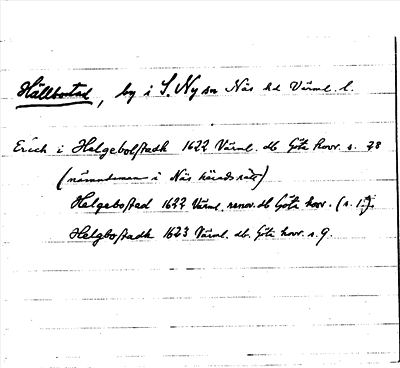 Hällbostad, by i S. Ny sn Näs hd Värml. l.
Erich i Helgebolstadh 1622 Värml. db Göta hovr. s. 28
(nämndeman i Näs häradsrätt)
Helgebostad 1622 Värml. renov. db Göta hovr. (s.
Helgbostadh 1623 Värml. db. Göta hovr. s. 9.